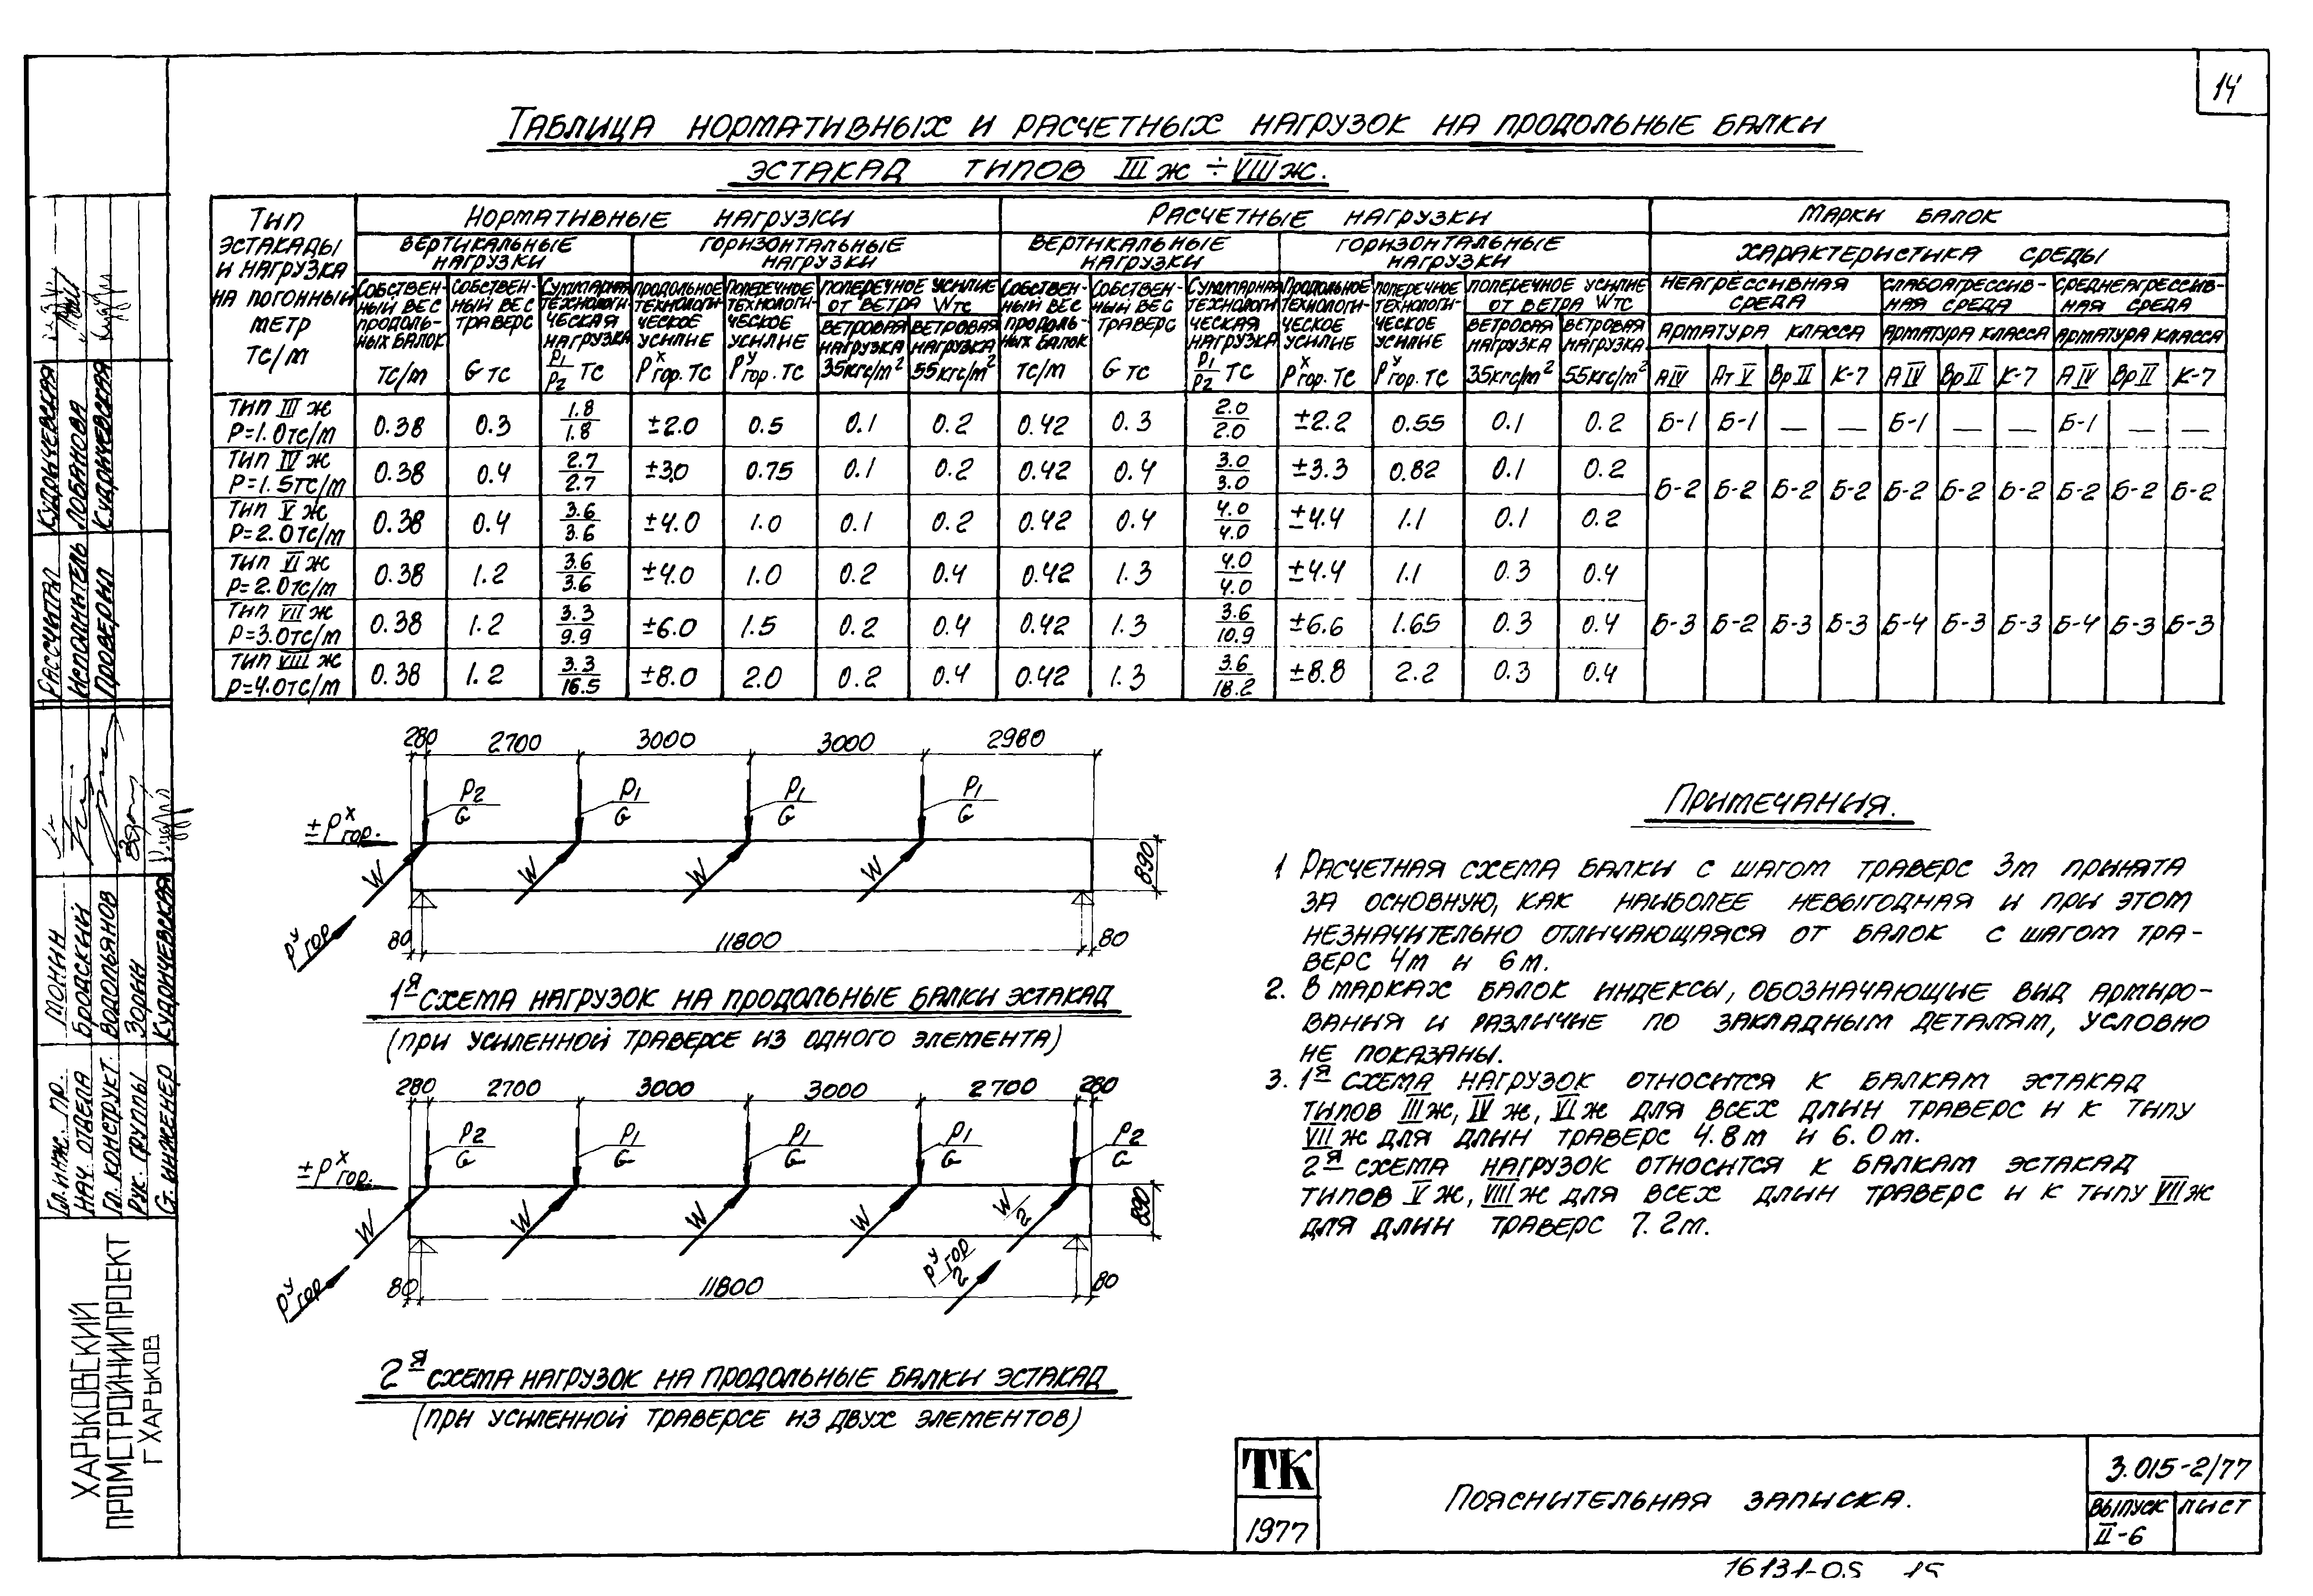 14
Таблица нормативных и расчетных нагрузок на продольные балки
эстакад типов III ж ÷ VIII ж.
Тип эстакады и нагрузка на погонный метр тс/м
Нормативные нагрузки
Расчетные нагрузки
Марки балок
Вертикальные нагрузки
Горизонтальные нагрузки
Вертикальные нагрузки
Горизонтальные нагрузки
Характеристика среды
Собственный вес продольных балок тс/м
Собственный вес траверс G тс
Суммарная технологическая нагрузка P1/P2 тс
Продольное технологическое усилие Pˣгор. тс
Поперечное технологическое усилие Pʸгор. тс
Поперечное усилие от ветра Wтс
Ветровая нагрузка 35кгс/м²
Ветровая нагрузка 55кгс/м²
Собственный вес продольных балок тс/м
Собственный вес траверс G тс
Суммарная технологическая нагрузка P1/P2 тс
Продольное технологическое усилие Pˣгор. тс
Поперечное технологическое усилие Pʸгор. тс
Поперечное усилие от ветра Wтс
Ветровая нагрузка 35кгс/м²
Ветровая нагрузка 55кгс/м²
Неагрессивная среда
Слабоагрессивная среда
Среднеагрессивная среда
Арматура класса
Арматура класса
Арматура класса
АIV АтV ВрII К-7 АIV ВрII К-7 АIV ВрII К-7
Тип III ж P=1.0тс/м 0.38 0.3 1.8/1.8 ±2.0 0.5 0.1 0.2 0.42 0.3 2.0/2.0 ±2.2 0.55 0.1 0.2 Б-1 Б-1 — — Б-1 — — Б-1 — —
Тип IV ж P=1.5тс/м 0.38 0.4 2.7/2.7 ±3.0 0.75 0.1 0.2 0.42 0.4 3.0/3.0 ±3.3 0.82 0.1 0.2
Б-2 Б-2 Б-2 Б-2 Б-2 Б-2 Б-2 Б-2 Б-2 Б-2
Тип V ж P=2.0тс/м 0.38 0.4 3.6/3.6 ±4.0 1.0 0.1 0.2 0.42 0.4 4.0/4.0 ±4.4 1.1 0.1 0.2
Тип VI ж P=2.0тс/м 0.38 1.2 3.6/3.6 ±4.0 1.0 0.2 0.4 0.42 1.3 4.0/4.0 ±4.4 1.1 0.3 0.4
Тип VII ж P=3.0тс/м 0.38 1.2 3.3/9.9 ±6.0 1.5 0.2 0.4 0.42 1.3 3.6/10.9 ±6.6 1.65 0.3 0.4 Б-3 Б-2 Б-3 Б-3 Б-4 Б-3 Б-3 Б-4 Б-3 Б-3
Тип VIII ж P=4.0тс/м 0.38 1.2 3.3/16.5 ±8.0 2.0 0.2 0.4 0.42 1.3 3.6/18.2 ±8.8 2.2 0.3 0.4
280 2700 3000 3000 2980
P2/G P1/G P1/G P1/G
±Pˣгор.
W W W W
Pʸгор
890
80 11800 80
1я схема нагрузок на продольные балки эстакад
(при усиленной траверсе из одного элемента)
280 2700 3000 3000 2700 280
P2/G P1/G P1/G P1/G P2/G
±Pˣгор.
W W W W W/2
Pʸгор
Pʸгор/2
890
80 11800 80
2я схема нагрузок на продольные балки эстакад
(при усиленной траверсе из двух элементов)
Примечания.
1 Расчетная схема балки с шагом траверс 3м принята
за основную, как наиболее невыгодная и при этом
незначительно отличающаяся от балок с шагом тра-
верс 4м и 6м.
2. В марках балок индексы, обозначающие вид армиро-
вания и различие по закладным деталям, условно
не показаны.
3. 1я схема нагрузок относится к балкам эстакад
типов III ж, IV ж, VI ж для всех длин траверс и к типу
VII ж для длин траверс 4.8м и 6.0м.
2я схема нагрузок относится к балкам эстакад
типов V ж, VIII ж для всех длин траверс и к типу VII ж
для длин траверс 7.2м.
ТК
1977
Пояснительная записка.
3.015-2/77
Выпуск II-6
Лист
16131-05 15
Рассчитал Кудончевская
Исполнитель Лобанова
Проверил Кудончевская
Гл. инж. пр. Монин
Нач. отдела Бродский
Гл. конструкт. Водопьянов
Рук. группы Зорин
Ст. инженер Кудончевская
Харьковский
Промстройниипроект
г Харьков